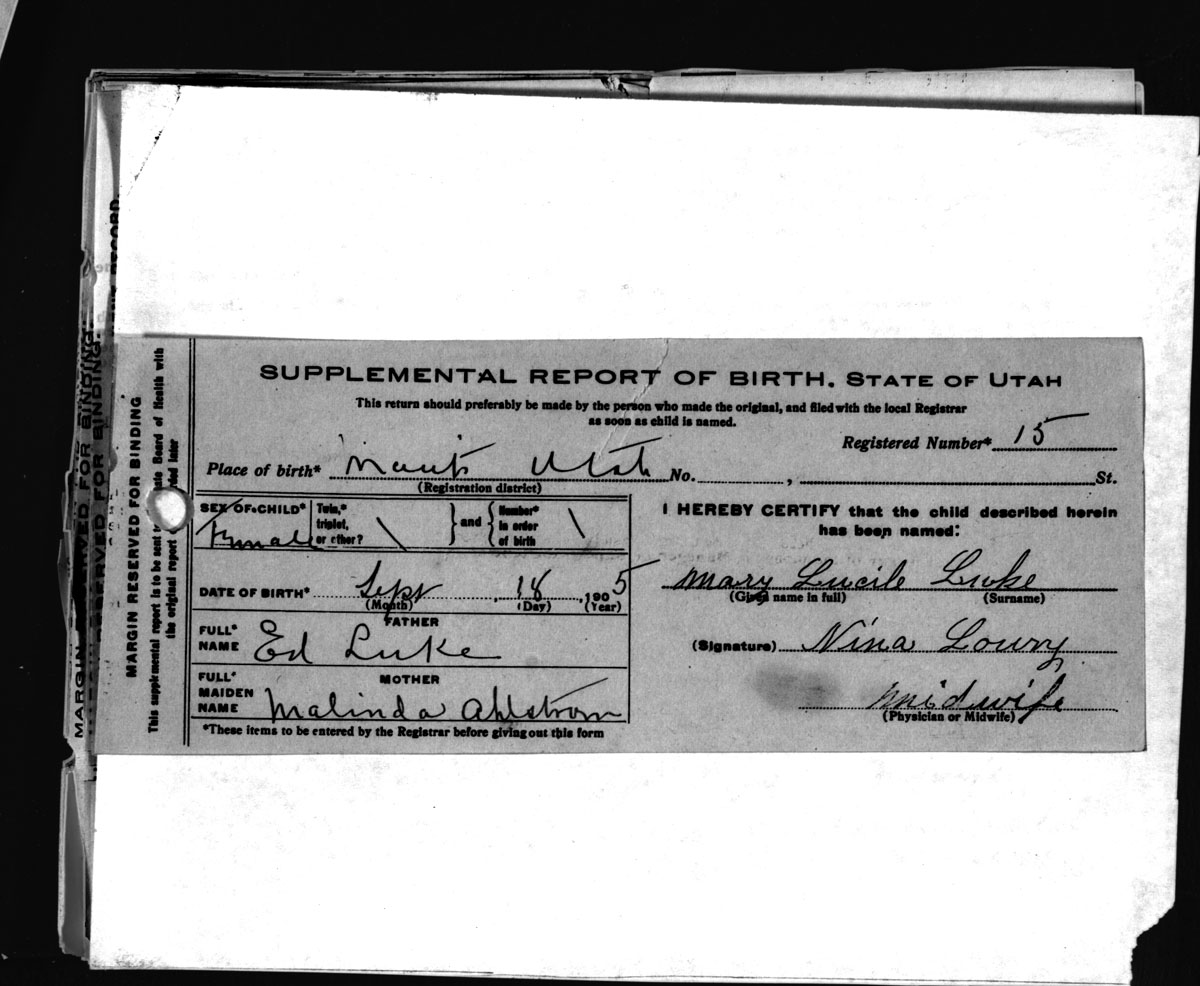 SUPPLEMENTAL REPORT OF BIRTH. STATE OF UTAH
This return should preferably be made by the person who made the original, and filed with the local Registrar
as soon as child is named.
Registered Number* 15
Place of birth* Manti Utah No. , St.
(Registration district)
SEX OF CHILD* Female
Twin,* triplet, or other? \ and Number* in order of birth \
DATE OF BIRTH* Sept 18, 1905
(Month) (Day) (Year)
FATHER
FULL* NAME Ed Luke
MOTHER
FULL* MAIDEN NAME Malinda Ahlstrom
*These items to be entered by the Registrar before giving out this form
I HEREBY CERTIFY that the child described herein
has been named:
Mary Lucile Luke
(Given name in full) (Surname)
(Signature) Nina Lowry
midwife
(Physician or Midwife)
MARGIN RESERVED FOR BINDING
This supplemental report is to be sent to Board of Health with
the original report later
RESERVED FOR BINDING.
MARGIN RESERVED FOR BINDING.
RECORD.